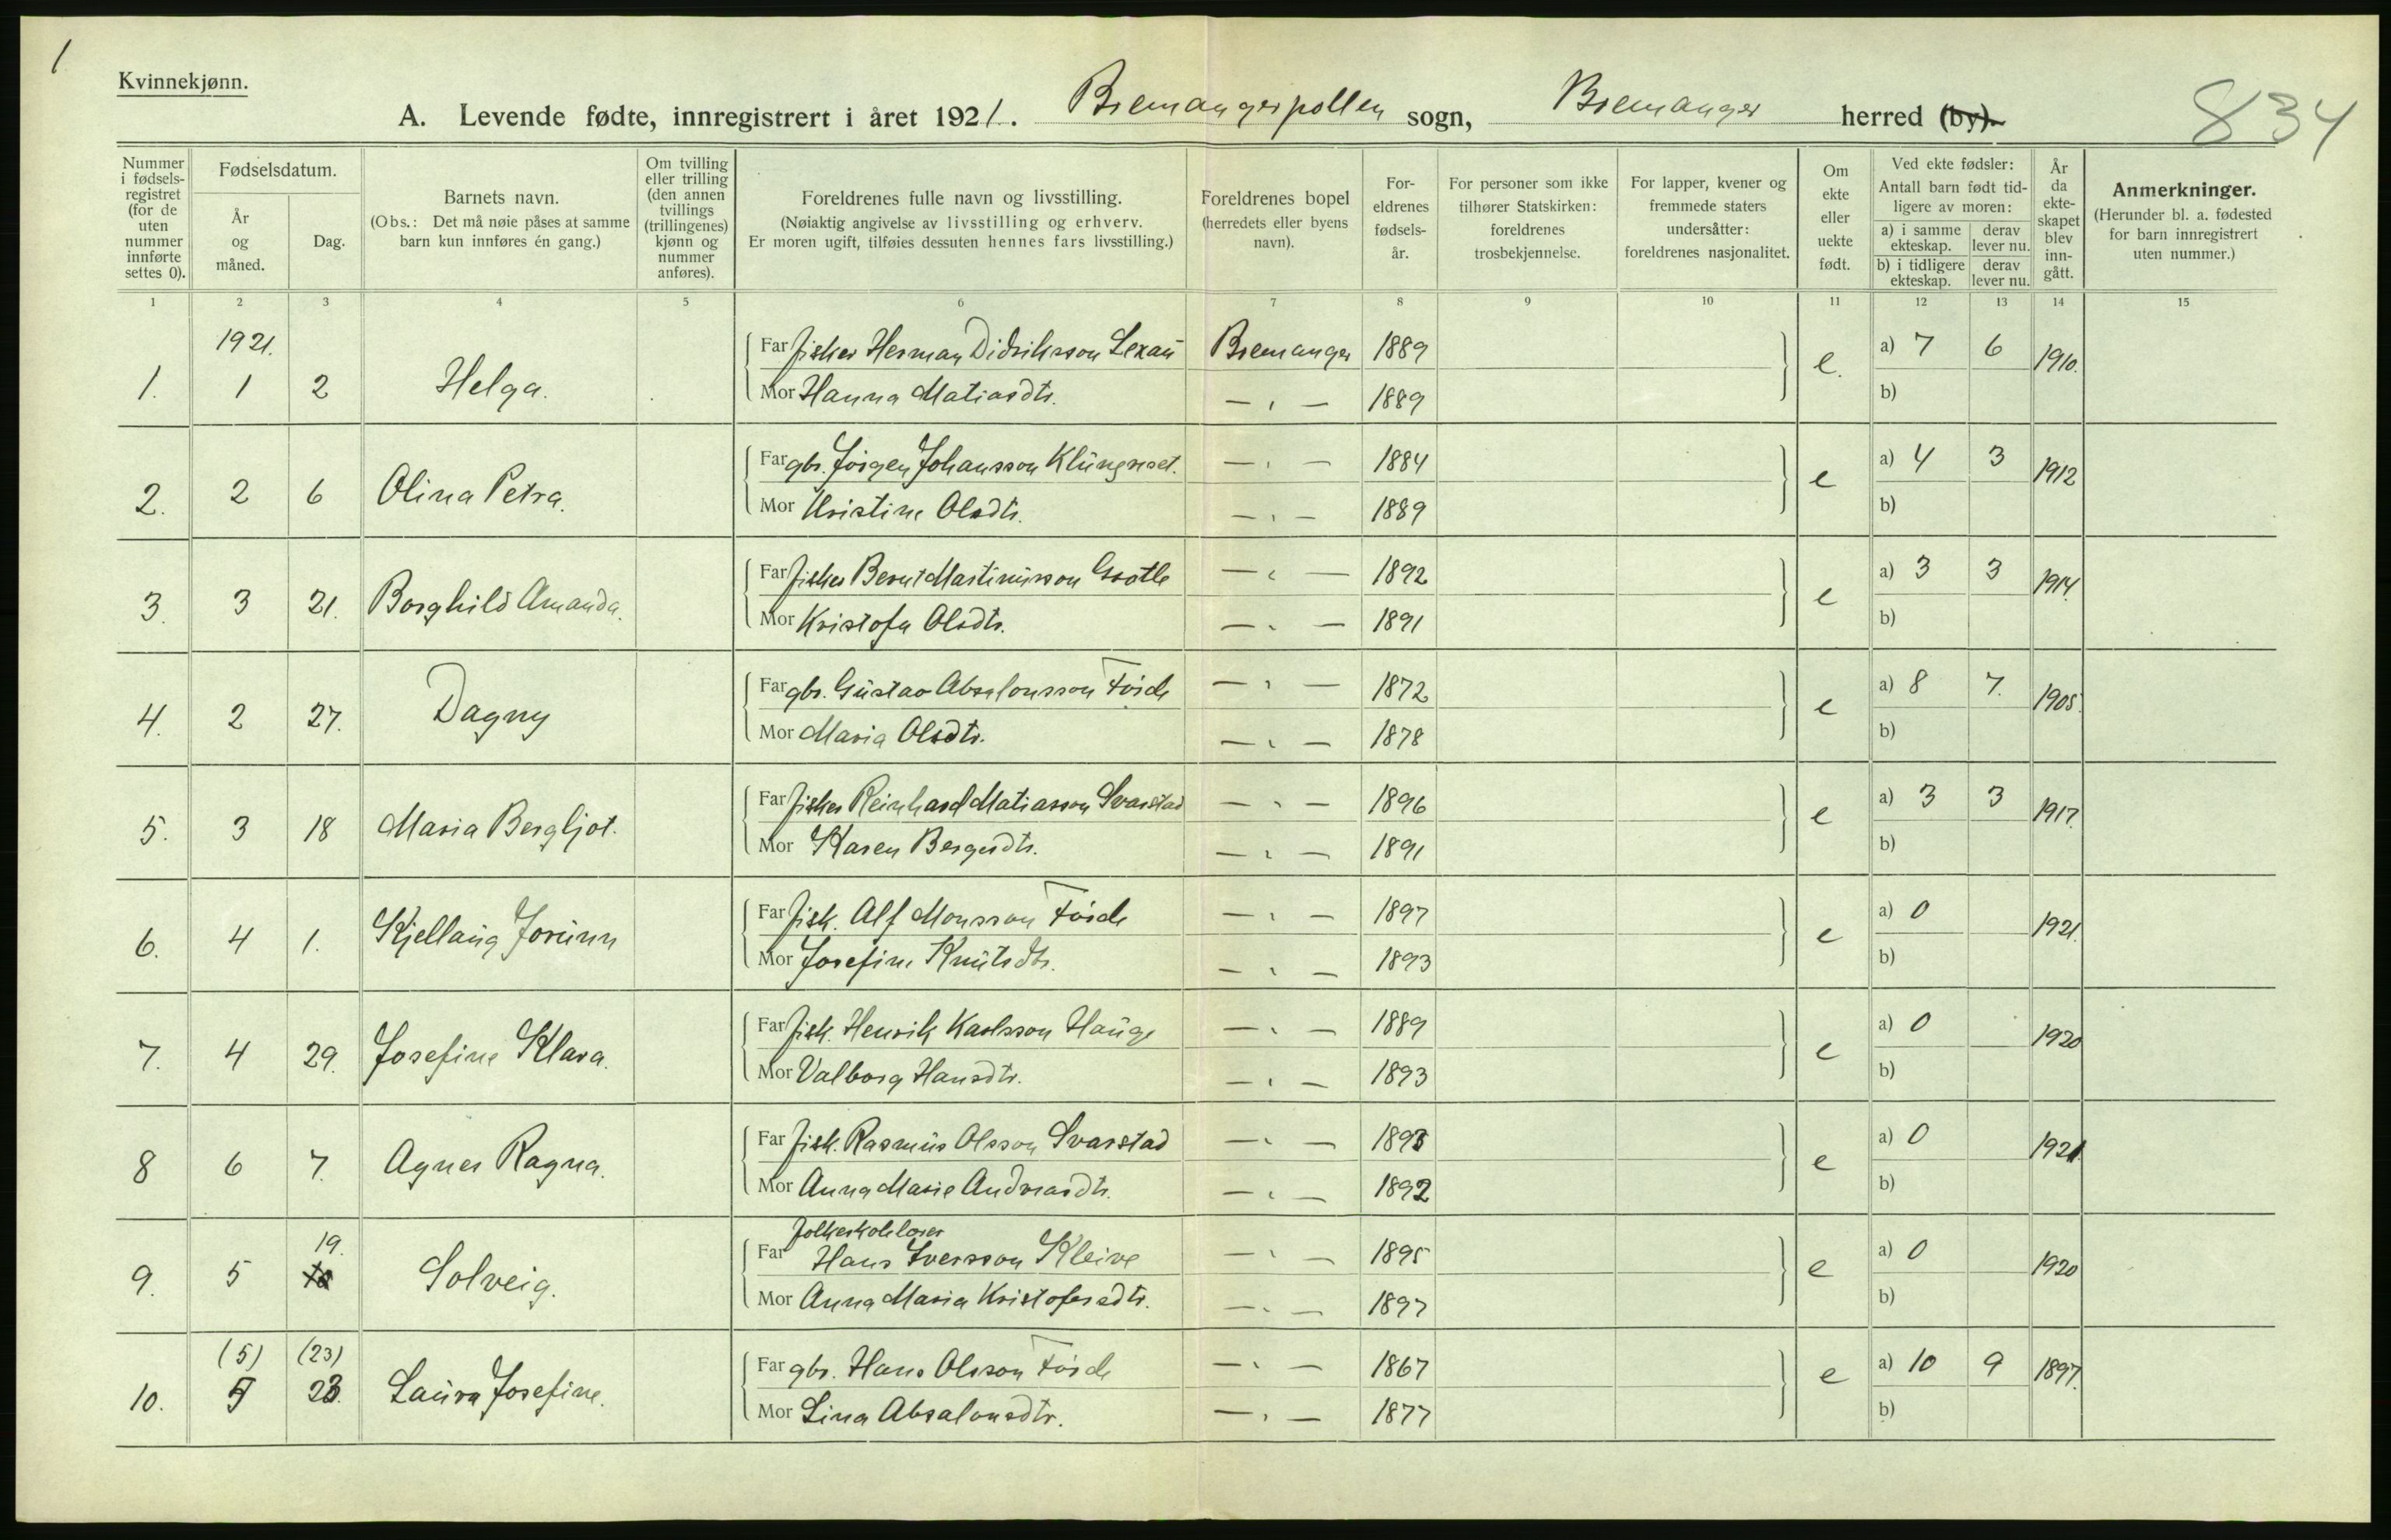 1
Kvinnekjønn.
A. Levende fødte, innregistrert i året 1921. Bremangerpollen sogn, Bremanger herred (by).
834
Nummer i fødsels-registret (for de uten nummer innførte settes 0).
Fødselsdatum.
År og måned.
Dag.
Barnets navn.
(Obs.: Det må nøie påses at samme barn kun innføres én gang.)
Om tvilling eller trilling (den annen tvillings (trillingenes) kjønn og nummer anføres).
Foreldrenes fulle navn og livsstilling.
(Nøiaktig angivelse av livsstilling og erhverv.
Er moren ugift, tilføies dessuten hennes fars livsstilling.)
Foreldrenes bopel (herredets eller byens navn).
For-eldrenes fødsels-år.
For personer som ikke tilhører Statskirken: foreldrenes trosbekjennelse.
For lapper, kvener og fremmede staters undersåtter: foreldrenes nasjonalitet.
Om ekte eller uekte født.
Ved ekte fødsler:
Antall barn født tid-ligere av moren:
a) i samme ekteskap.
derav lever nu.
b) i tidligere ekteskap.
derav lever nu.
År da ekte-skapet blev inn-gått.
Anmerkninger.
(Herunder bl. a. fødested for barn innregistrert uten nummer.)
1 2 3 4 5 6 7 8 9 10 11 12 13 14 15
1921.
1. 1 2 Helga. Far fisker Herman Didriksson Lexau Bremanger 1889 e. a) 7 6 1910.
Mor Hanna Matiasdtr. — " — 1889 b)
2. 2 6 Olina Petra. Far gbr. Jörgen Johansson Klungreset. — " — 1884 e a) 4 3 1912
Mor Kristine Olsdtr. — " — 1889 b)
3. 3 21. Borghild Amanda. Far fisker Bernt Martinusson Grotle — " — 1892 e a) 3 3 1914.
Mor Kristofa Olsdtr. — " — 1891 b)
4. 2 27. Dagny Far gbr. Gustav Absalonsson Förde — " — 1872 e a) 8 7. 1905.
Mor Maria Olsdtr. — " — 1878 b)
5. 3 18 Maria Bergljot. Far fisker Reinhard Matiasson Svarstad — " — 1896 e a) 3 3 1917.
Mor Karen Bergesdtr. — " — 1891 b)
6. 4 1. Kjellaug Jorunn Far fisk. Alf Monsson Förde — " — 1897 e a) 0 1921.
Mor Josefine Knutsdtr. — " — 1893 b)
7. 4 29. Josefine Klara. Far fisk. Henrik Karlsson Hauge — " — 1889 e a) 0 1920
Mor Valborg Hansdtr. — " — 1893 b)
8 6 7. Agnes Ragna. Far fisk. Rasmus Olsson Svarstad — " — 1893 e a) 0 1921.
Mor Anna Marie Andreasdtr. — " — 1892 b)
19. Folkeskolelærer
9. 5 18 Solveig. Far Hans Iversson Kleive — " — 1895 e a) 0 1920
Mor Anna Maria Kristofersdtr. — " — 1897 b)
(5) (23)
10. 5 23. Laura Josefine. Far gbr. Hans Olsson Förde — " — 1867 e a) 10 9 1897.
Mor Lina Absalonsdtr. — " — 1877 b)